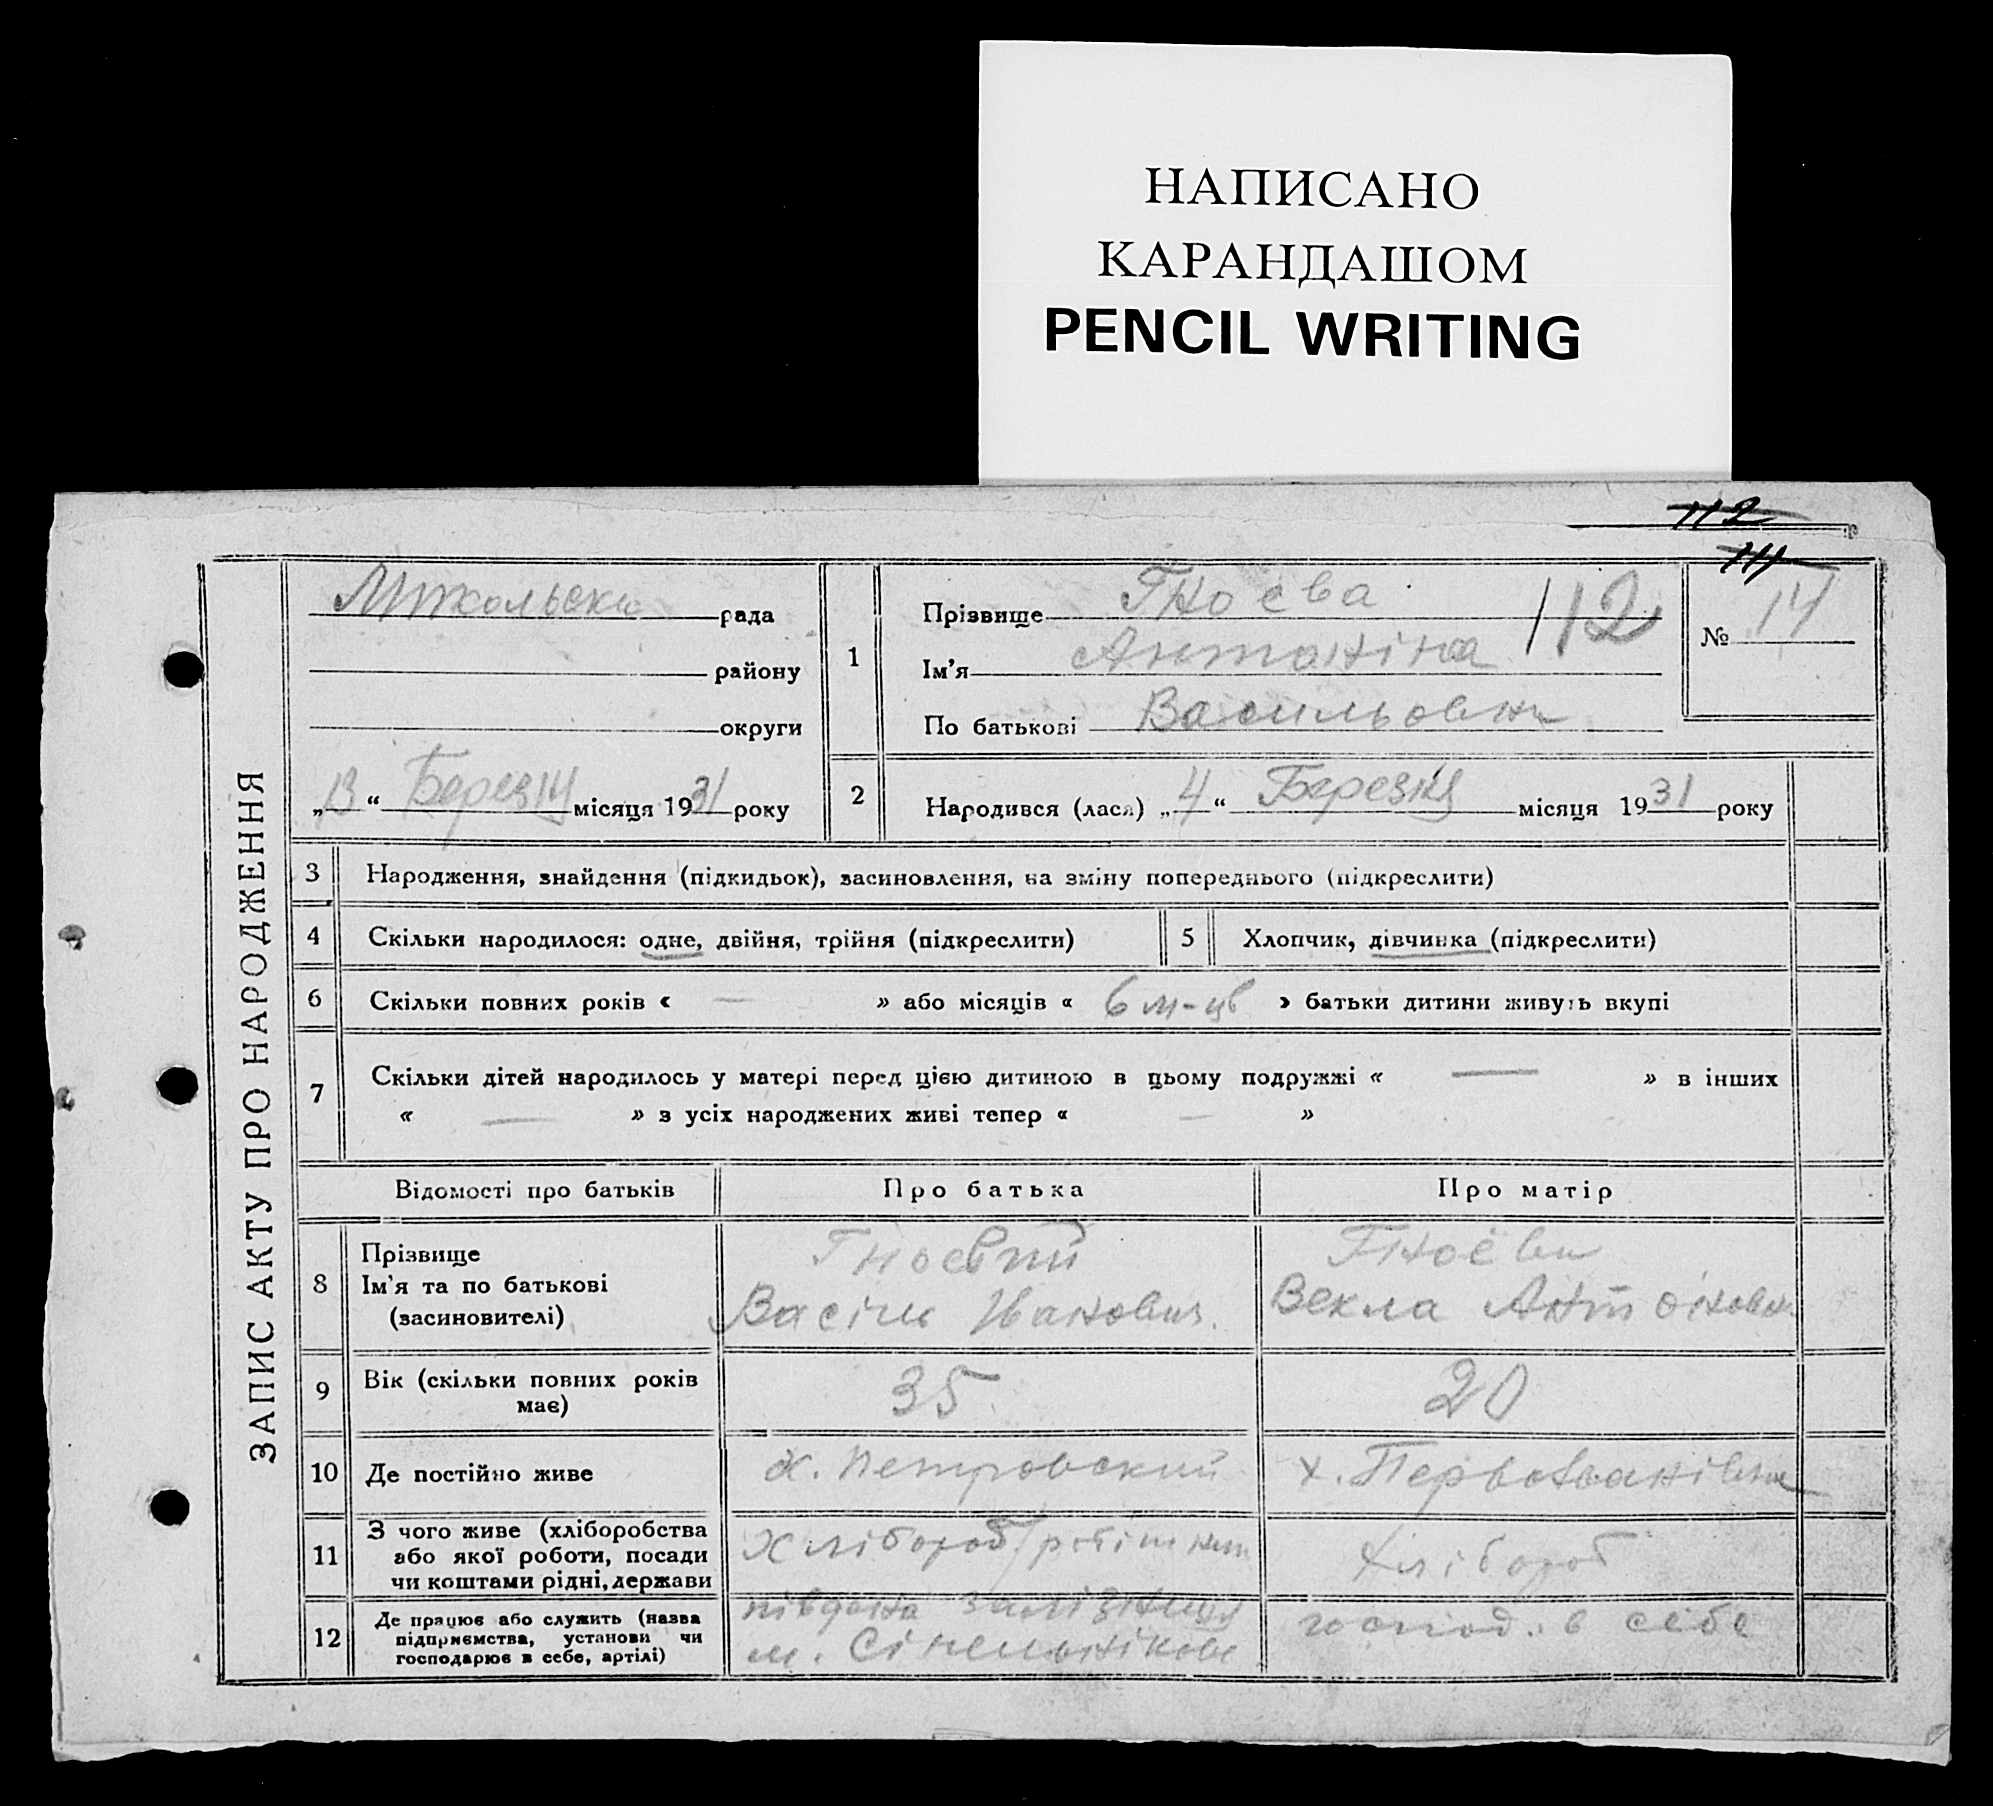 НАПИСАНО
КАРАНДАШОМ
PENCIL WRITING
112
111
ЗАПИС АКТУ ПРО НАРОДЖЕННЯ
Микольська рада
району
округи
„13“ Березня місяця 1931 року
1
Прізвище Гноєва
Ім’я Антоніна
По батькові Васильовна
112
№ 14
2 Народився (лася) „4“ Березня місяця 1931 року
3 Народження, знайдення (підкидьок), засиновлення, на зміну попереднього (підкреслити)
4 Скільки народилося: одне, двійня, трійня (підкреслити) 5 Хлопчик, дівчинка (підкреслити)
6 Скільки повних років « — » або місяців « 6 м-цв » батьки дитини живуть вкупі
7 Скільки дітей народилось у матері перед цією дитиною в цьому подружжі « — » в інших
« — » з усіх народжених живі тепер « — »
Відомості про батьків Про батька Про матір
8 Прізвище
Ім’я та по батькові
(засновителі)
Гноєвий
Васіль Іванович
Гноєва
Векла Антоновна
9 Вік (скільки повних років
має)
35 20
10 Де постійно живе х. Петровский х. Первозванівка
11 З чого живе (хліборобства
або якої роботи, посади
чи коштами рідні, держави
Хлібороб/робітник
Хлібороб
12 Де працює або служить (назва
підприємства, установи чи
господарює в себе, артілі)
південа залізниця
м. Сінельнікове
господ. в себе